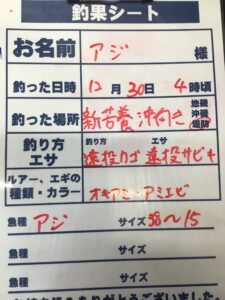 釣果シート
お名前 アジ 様
釣った日時 12月30日 4時頃
釣った場所 新若養沖向き 地磯 沖磯 堤防
釣り方 エサ 釣り方 遠投カゴ エサ 遠投サビキ
ルアー、エギの種類・カラー オキアミ アミエビ
魚種 アジ サイズ 38〜15
魚種 サイズ
魚種 サイズ